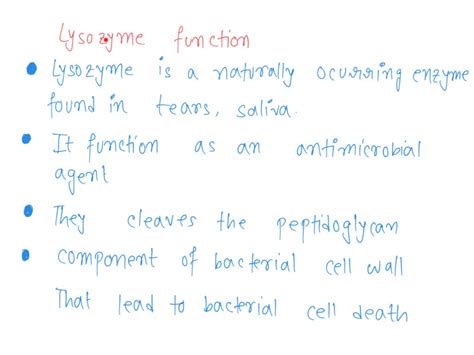 Lysozyme function
• Lysozyme is a naturally ocurring enzyme
found in tears, saliva.
• It function as an antimicrobial
agent
• They cleaves the peptidoglycan
• component of bacterial cell wall
That lead to bacterial cell death